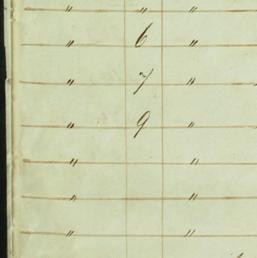 " " "
" 6 "
" 7 "
" 9 "
" "
" "
" "